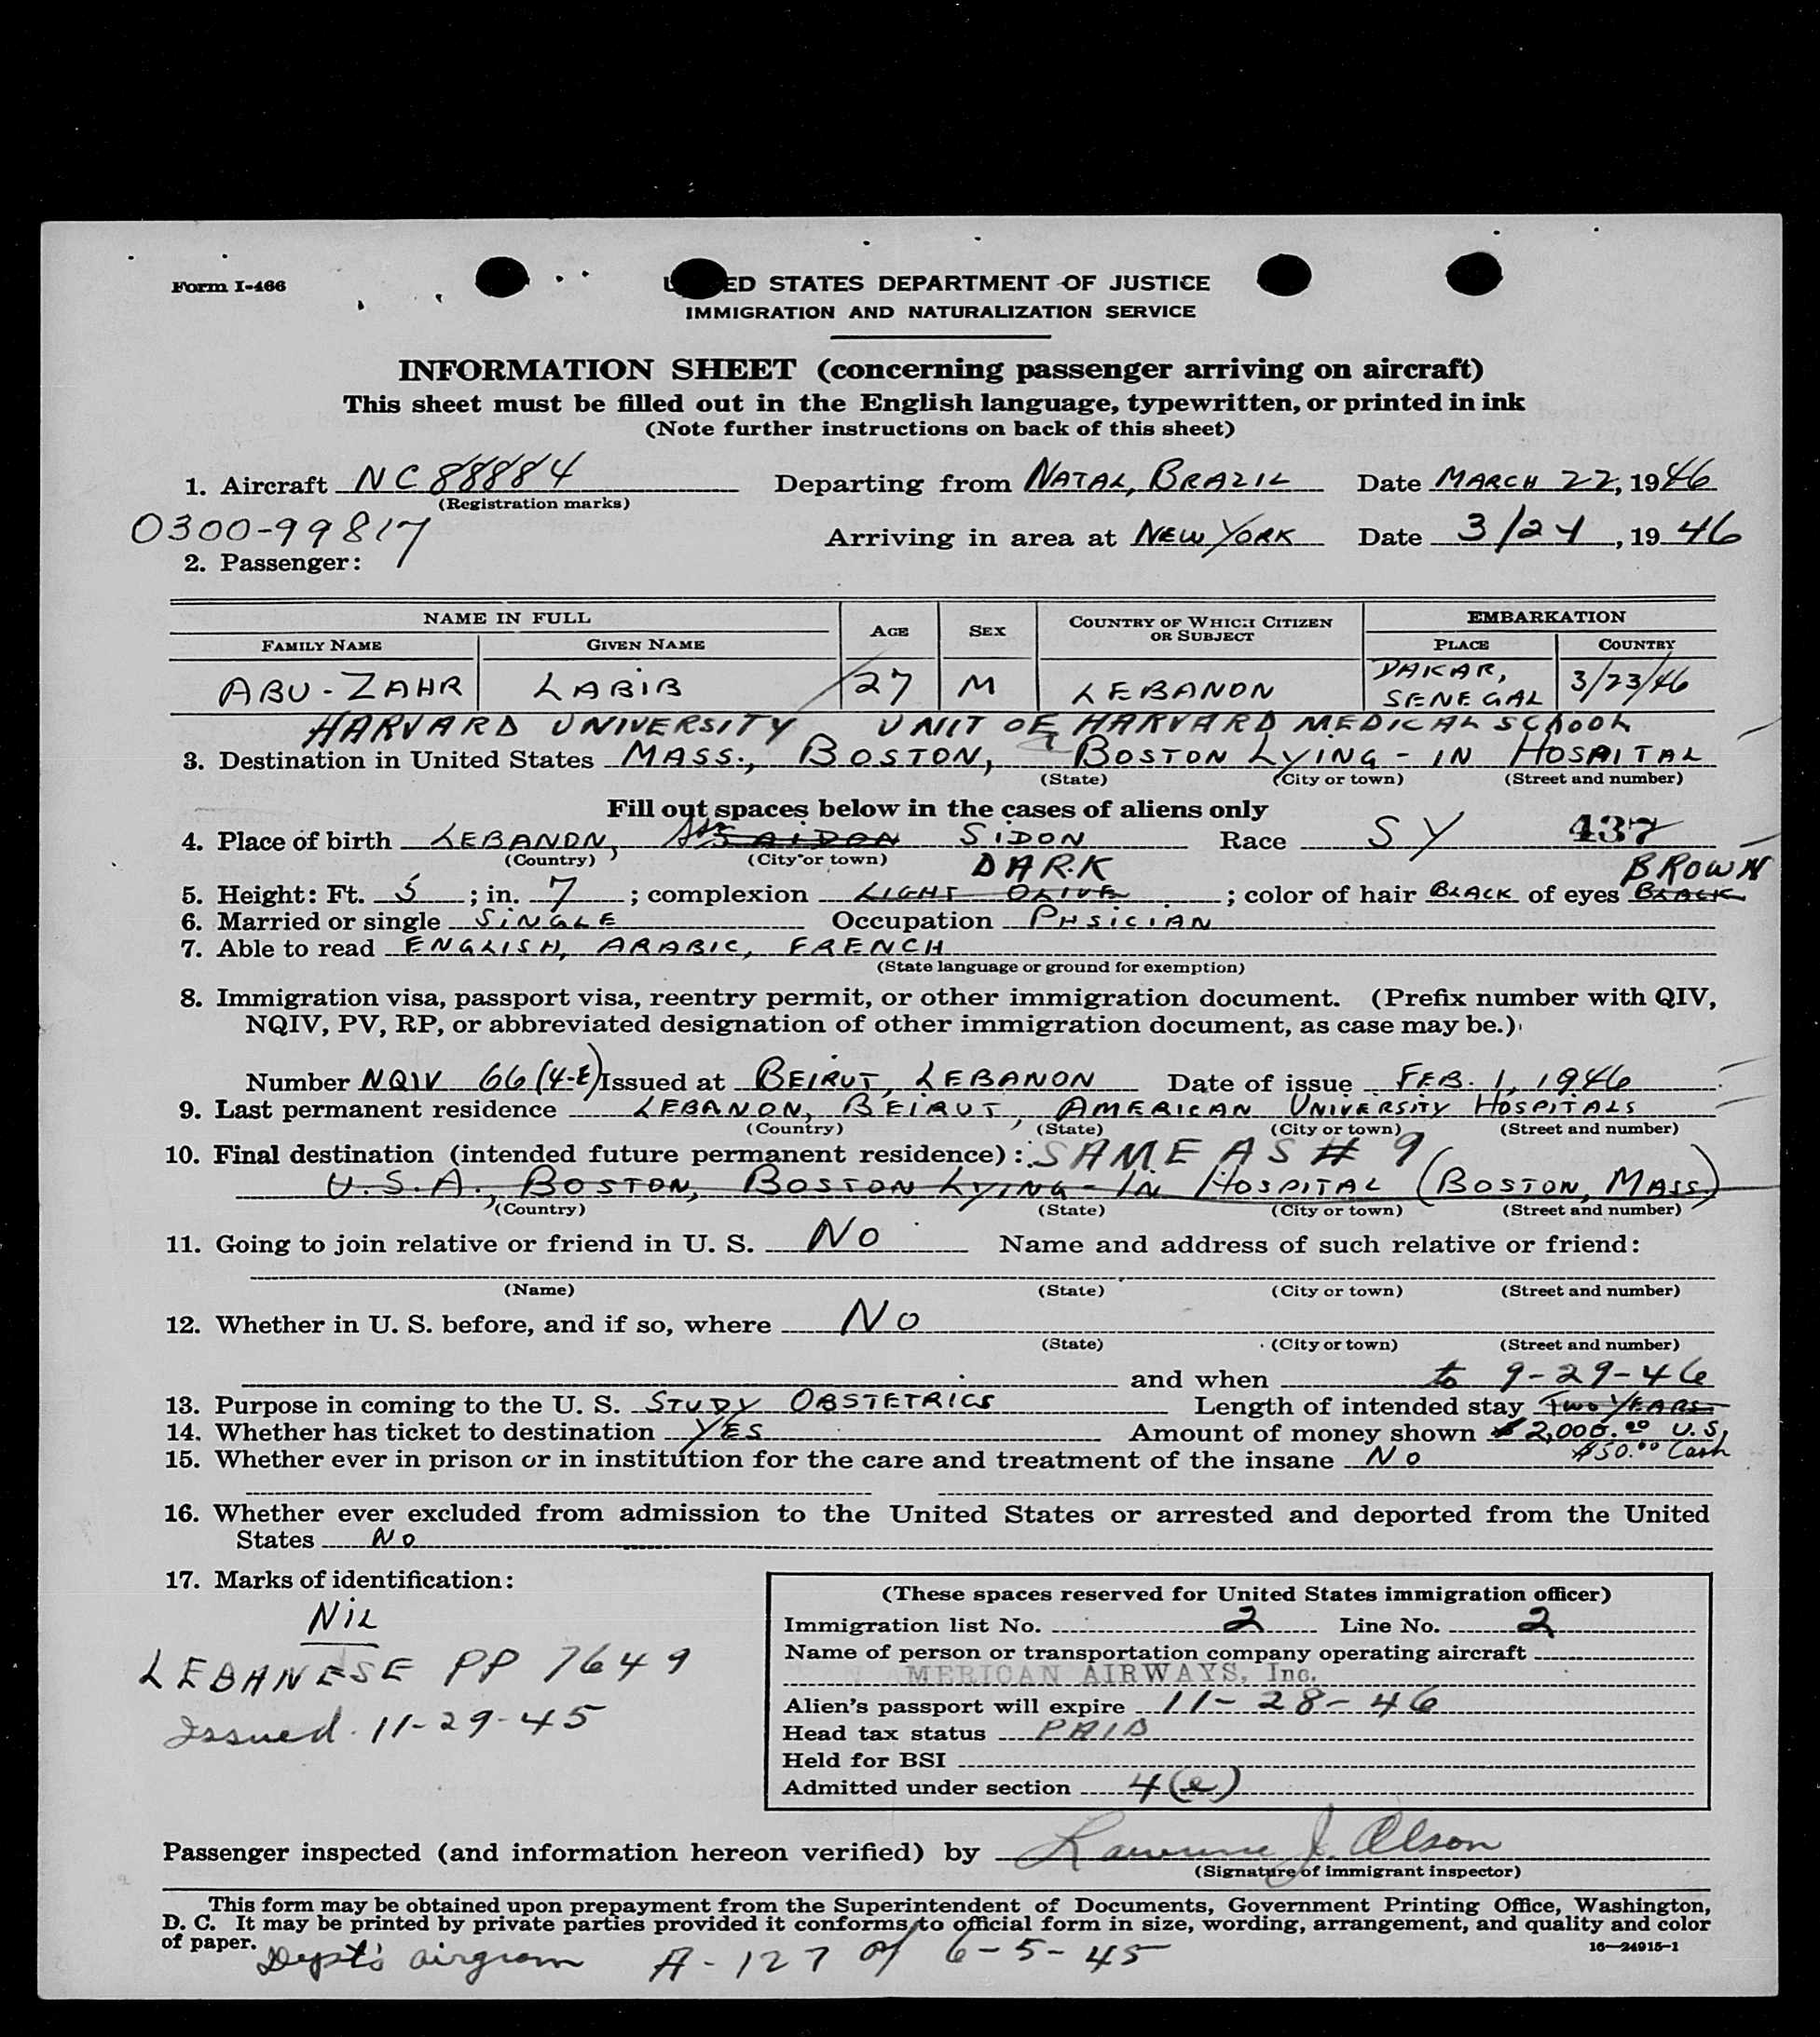 Form I-466
ED STATES DEPARTMENT OF JUSTICE
IMMIGRATION AND NATURALIZATION SERVICE
INFORMATION SHEET (concerning passenger arriving on aircraft)
This sheet must be filled out in the English language, typewritten, or printed in ink
(Note further instructions on back of this sheet)
1. Aircraft NC 88884 Departing from NATAL, BRAZIL Date MARCH 22, 1946
(Registration marks)
0300-99817
Arriving in area at NEW YORK Date 3/24, 1946
2. Passenger:
NAME IN FULL AGE SEX COUNTRY OF WHICH CITIZEN OR SUBJECT EMBARKATION
FAMILY NAME GIVEN NAME PLACE COUNTRY
ABU-ZAHR LABIB 27 M LEBANON DAKAR, SENEGAL 3/23/46
HARVARD UNIVERSITY UNIT OF HARVARD MEDICAL SCHOOL
3. Destination in United States MASS., BOSTON, BOSTON LYING-IN HOSPITAL
(State) (City or town) (Street and number)
Fill out spaces below in the cases of aliens only
4. Place of birth LEBANON, SAIDON SIDON Race SY 437
(Country) (City or town)
DARK BROWN
5. Height: Ft. 5; in. 7; complexion LIGHT OLIVE; color of hair BLACK of eyes BLACK
6. Married or single SINGLE Occupation PHSICIAN
7. Able to read ENGLISH, ARABIC, FRENCH
(State language or ground for exemption)
8. Immigration visa, passport visa, reentry permit, or other immigration document. (Prefix number with QIV,
NQIV, PV, RP, or abbreviated designation of other immigration document, as case may be.)
Number NQIV 66 (4-E) Issued at BEIRUT, LEBANON Date of issue FEB. 1, 1946
9. Last permanent residence LEBANON, BEIRUT, AMERICAN UNIVERSITY HOSPITALS
(Country) (State) (City or town) (Street and number)
10. Final destination (intended future permanent residence): SAME AS # 9
U.S.A., BOSTON, BOSTON LYING-IN HOSPITAL (BOSTON, MASS)
(Country) (State) (City or town) (Street and number)
11. Going to join relative or friend in U. S. NO Name and address of such relative or friend:
(Name) (State) (City or town) (Street and number)
12. Whether in U. S. before, and if so, where NO
(State) (City or town) (Street and number)
and when to 9-29-46
13. Purpose in coming to the U. S. STUDY OBSTETRICS Length of intended stay TWO YEARS
14. Whether has ticket to destination YES Amount of money shown $2,000.00 U.S.
$50.00 Cash
15. Whether ever in prison or in institution for the care and treatment of the insane NO
16. Whether ever excluded from admission to the United States or arrested and deported from the United
States NO
17. Marks of identification:
NIL
LEBANESE PP 7649
Issued 11-29-45
(These spaces reserved for United States immigration officer)
Immigration list No. 2 Line No. 2
Name of person or transportation company operating aircraft
MERICAN AIRWAYS, Inc.
Alien's passport will expire 11-28-46
Head tax status PAID
Held for BSI
Admitted under section 4(e)
Passenger inspected (and information hereon verified) by Lawrence J. Olson
(Signature of immigrant inspector)
This form may be obtained upon prepayment from the Superintendent of Documents, Government Printing Office, Washington,
D. C. It may be printed by private parties provided it conforms to official form in size, wording, arrangement, and quality and color
of paper.
16—24915-1
Dept's airgram A-127 of 6-5-45